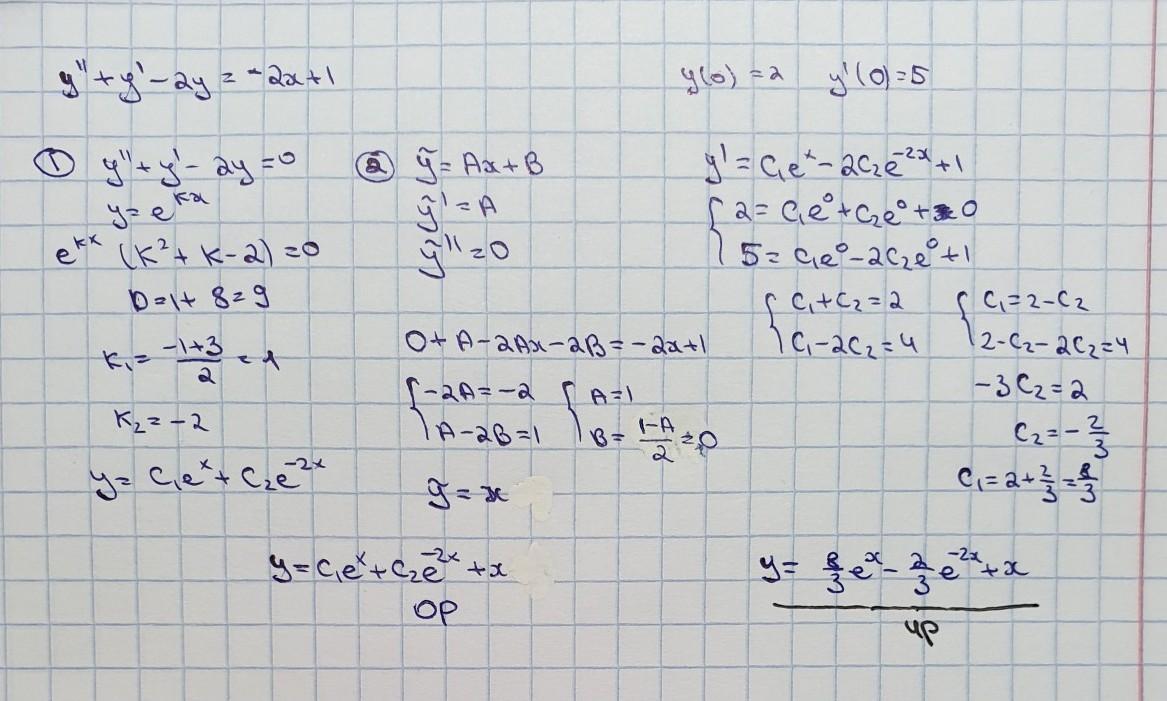 y'' + y' - 2y = -2x+1
y(0) = 2 y'(0)=5
① y'' + y' - 2y = 0
y = e^{kx}
e^{kx} (k² + k - 2) = 0
D = 1 + 8 = 9
k₁ = \frac{-1+3}{2} = 1
k₂ = -2
y = C₁e^x + C₂e^{-2x}
② ỹ = Ax + B
ỹ' = A
ỹ'' = 0
0 + A - 2Ax - 2B = -2x+1
{ -2A = -2 { A = 1
A - 2B = 1 B = \frac{1-A}{2} = 0
ỹ = x
y = C₁e^x + C₂e^{-2x} + x
ОР
y' = C₁e^x - 2C₂e^{-2x} + 1
{ 2 = C₁e⁰ + C₂e⁰ + 0
5 = C₁e⁰ - 2C₂e⁰ + 1
{ C₁ + C₂ = 2 { C₁ = 2 - C₂
C₁ - 2C₂ = 4 2 - C₂ - 2C₂ = 4
-3C₂ = 2
C₂ = -\frac{2}{3}
C₁ = 2 + \frac{2}{3} = \frac{8}{3}
y = \frac{8}{3}e^x - \frac{2}{3}e^{-2x} + x
ЧР